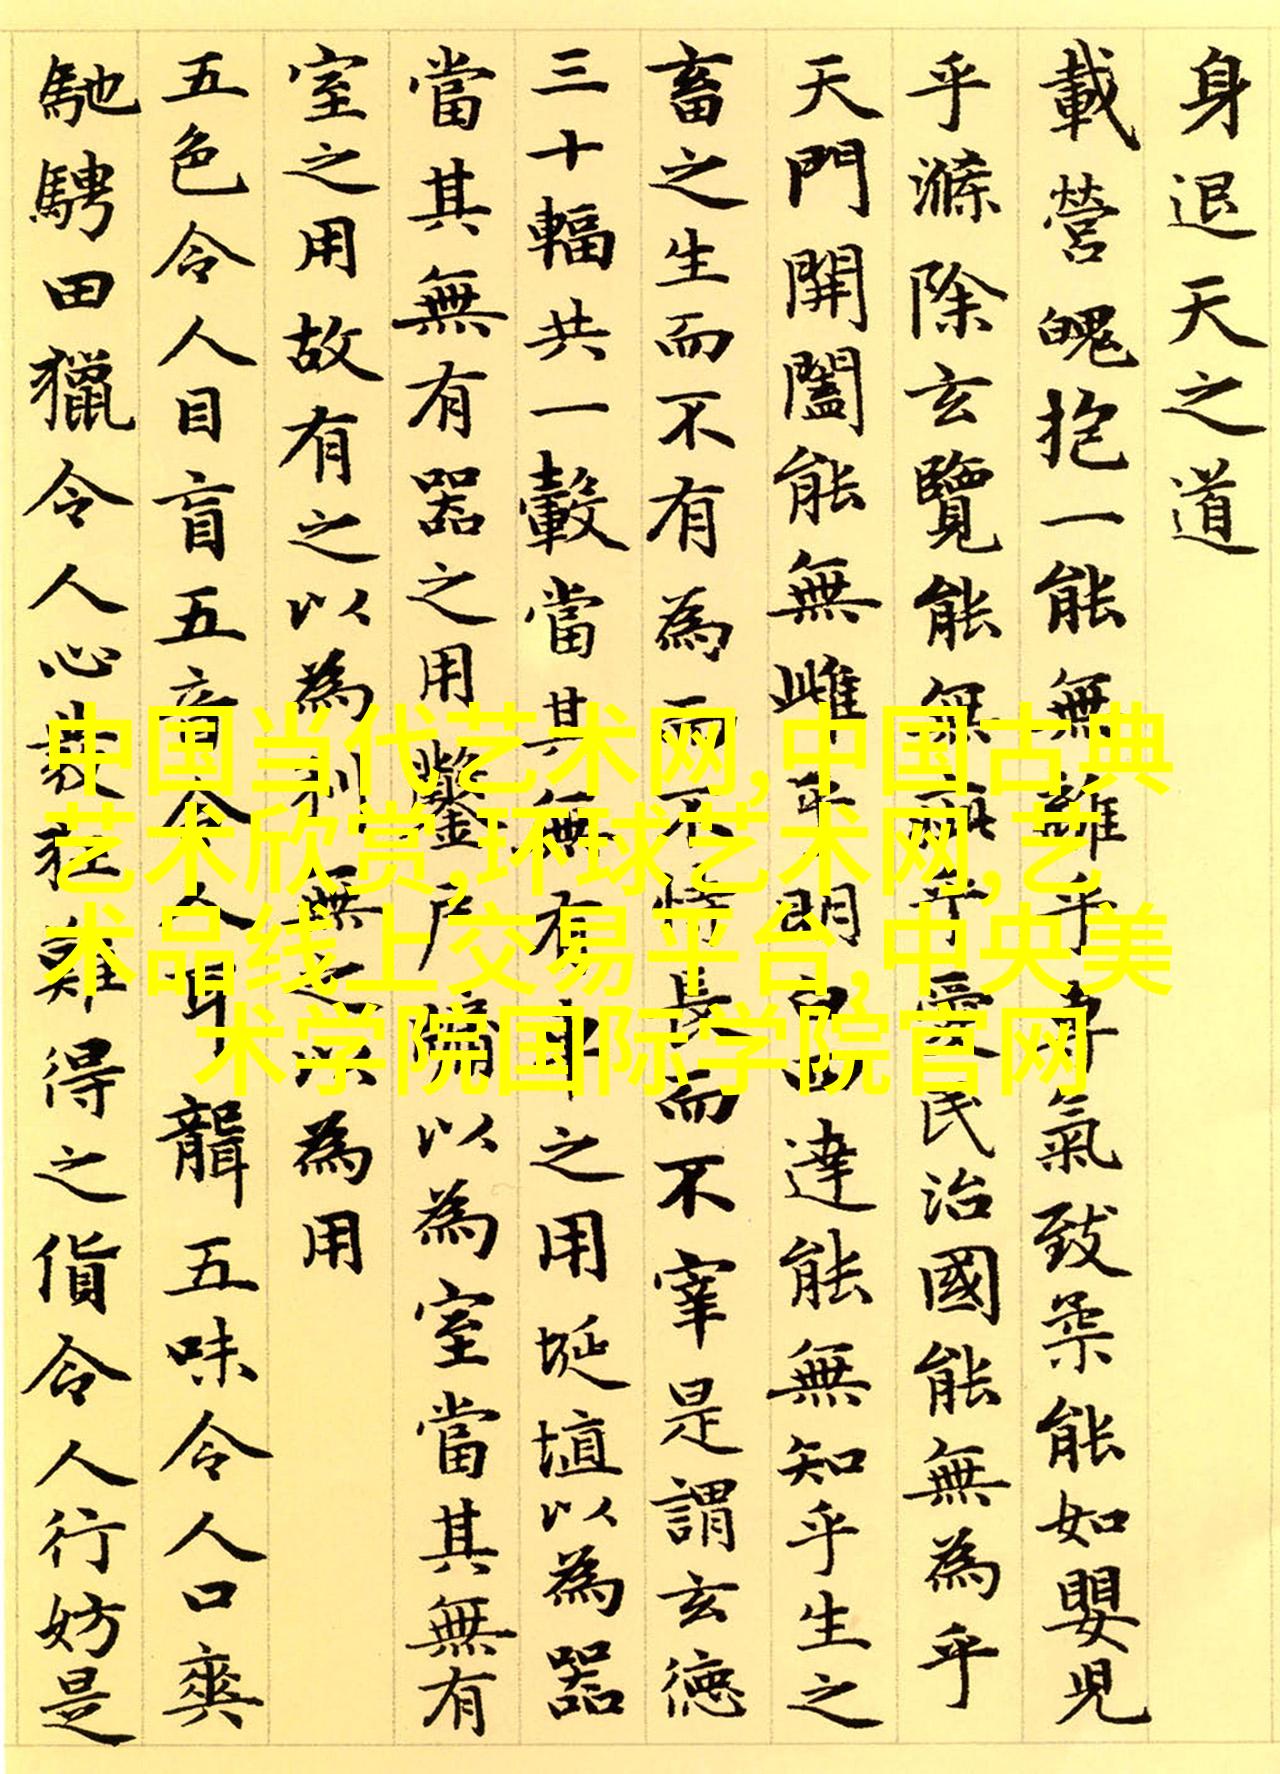 身退天之道
載營魄抱一能無離乎專氣致柔能如嬰兒
乎滌除玄覽能無疵乎愛民治國能無為乎
天門開闔能無雌乎明白四達能無知乎生之
畜之生而不有為而不恃長而不宰是謂玄德
三十輻共一轂當其無有車之用埏埴以為器
當其無有器之用鑿戶牖以為室當其無有
室之用故有之以為利無之以為用
五色令人目盲五音令人耳聾五味令人口爽
馳騁田獵令人心發狂難得之貨令人行妨是
中国当代艺术网,中国古典
艺术欣赏,环球艺术网,艺
术品线上交易平台,中央美
术学院国际学院官网